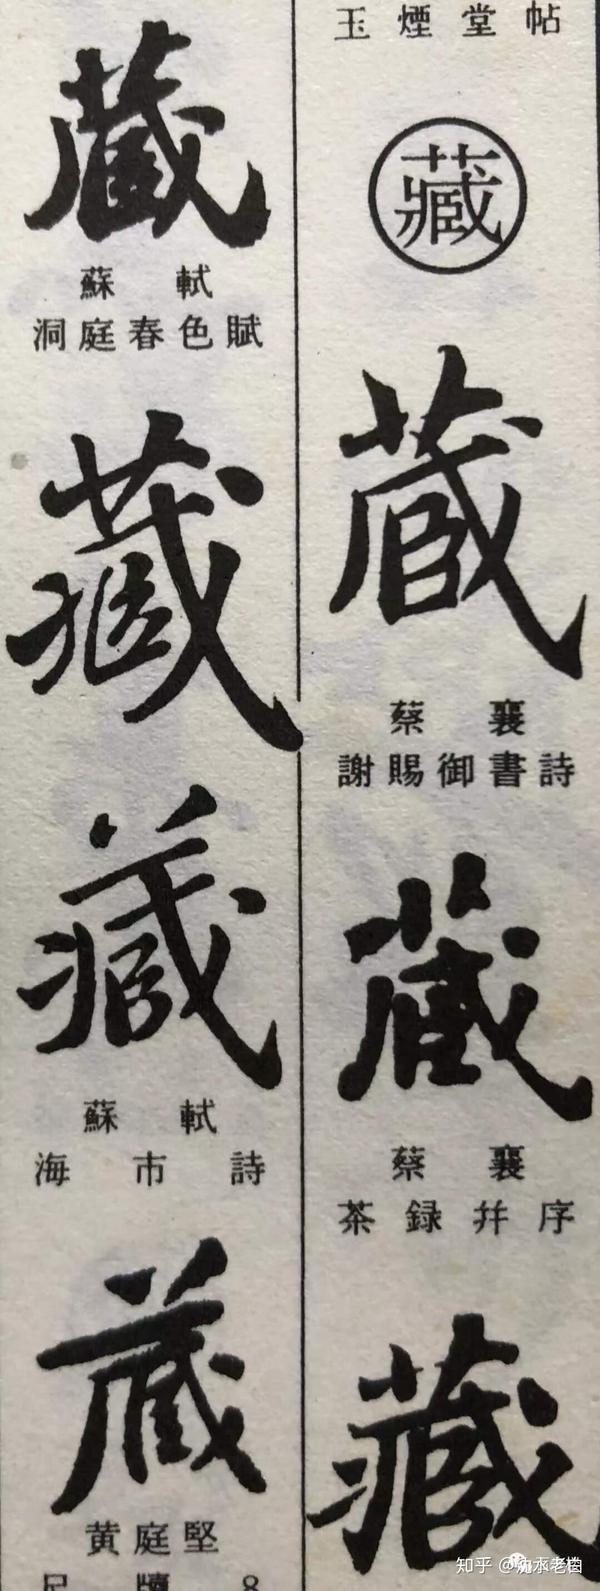 玉煙堂帖
藏
藏
蔡襄
謝賜御書詩
藏
蔡襄
茶録并序
藏
藏
蘇軾
洞庭春色賦
藏
藏
蘇軾
海市詩
藏
黄庭堅
尺牘8
知乎 @流水老柏